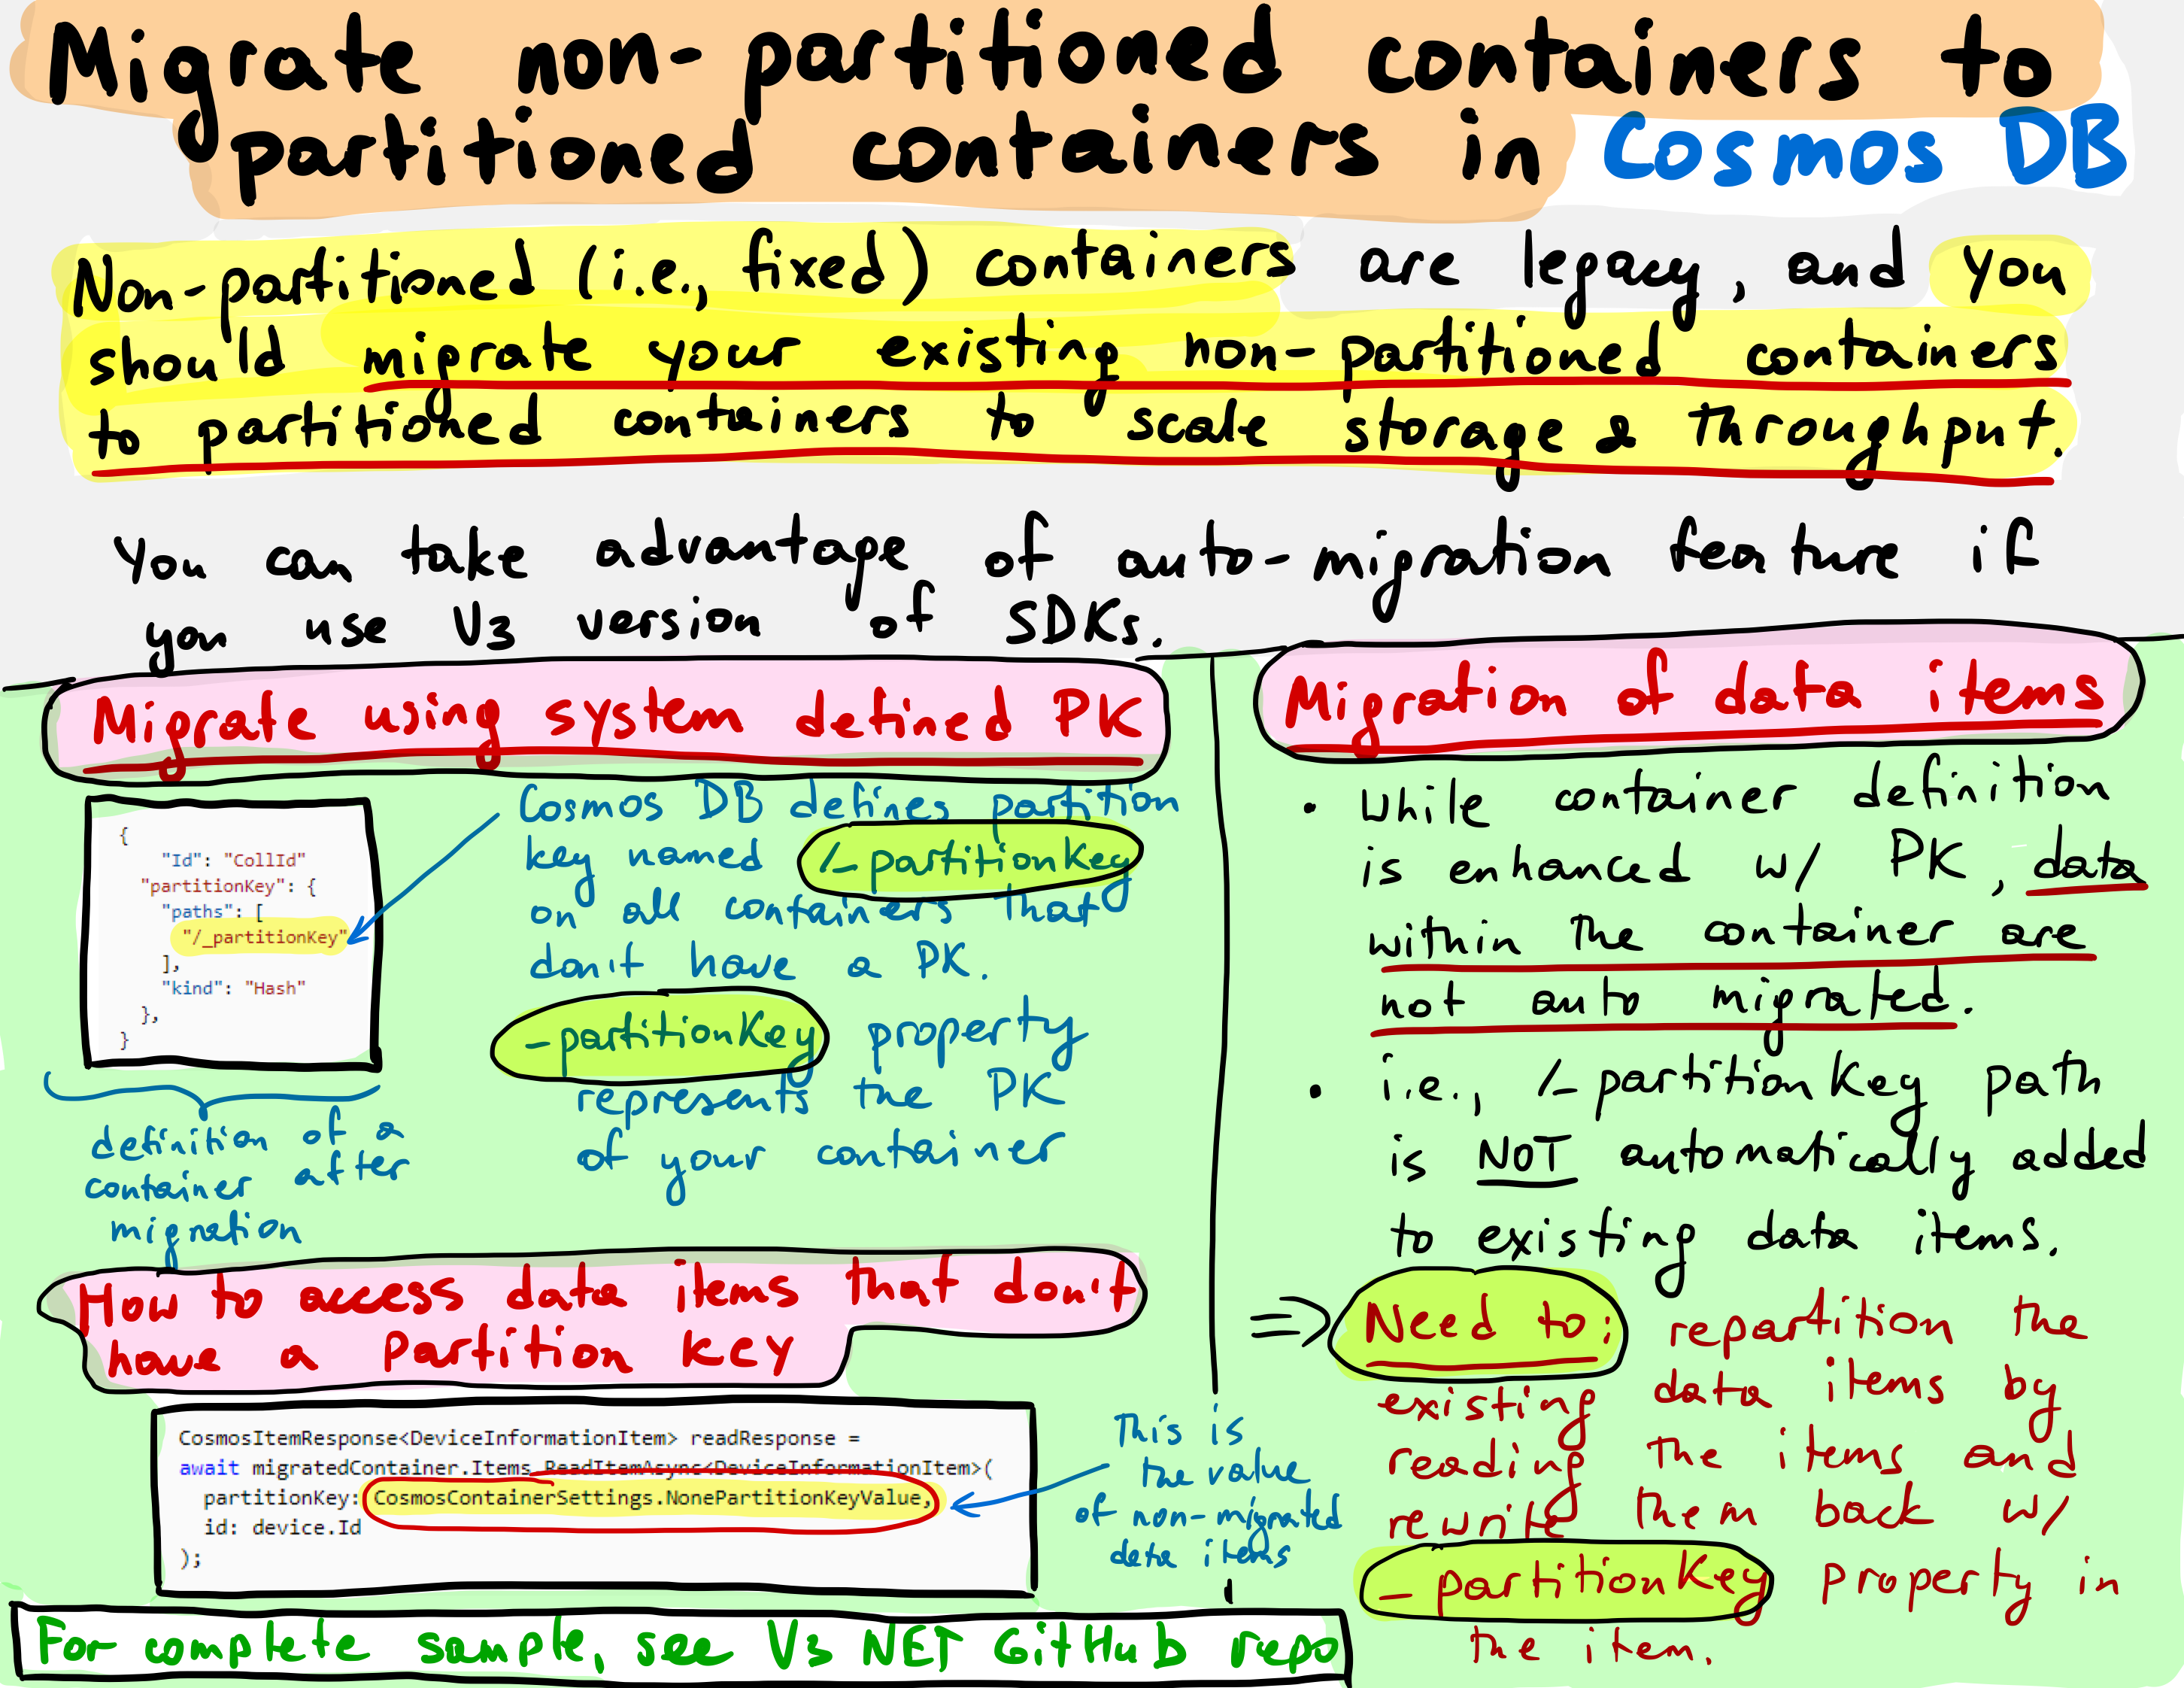 Migrate non-partitioned containers to
partitioned containers in Cosmos DB
Non-partitioned (i.e., fixed) containers are legacy, and you
should migrate your existing non-partitioned containers
to partitioned containers to scale storage & throughput.
You can take advantage of auto-migration feature if
you use V3 version of SDKs.
Migrate using system defined PK
{
"Id": "CollId"
"partitionKey": {
"paths": [
"/_partitionKey"
],
"kind": "Hash"
},
}
definition of a
container after
migration
Cosmos DB defines partition
key named /_partitionKey
on all containers that
don't have a PK.
_partitionKey property
represents the PK
of your container
How to access data items that don't
have a Partition Key
CosmosItemResponse<DeviceInformationItem> readResponse =
await migratedContainer.Items.ReadItemAsync<DeviceInformationItem>(
partitionKey: CosmosContainerSettings.NonePartitionKeyValue,
id: device.Id
);
This is
the value
of non-migrated
data items
For complete sample, see V3 NET GitHub repo
Migration of data items
• While container definition
is enhanced w/ PK, data
within the container are
not auto migrated.
• i.e., /_partitionKey path
is NOT automatically added
to existing data items.
=> Need to: repartition the
existing data items by
reading the items and
rewrite them back w/
_partitionKey property in
the item.